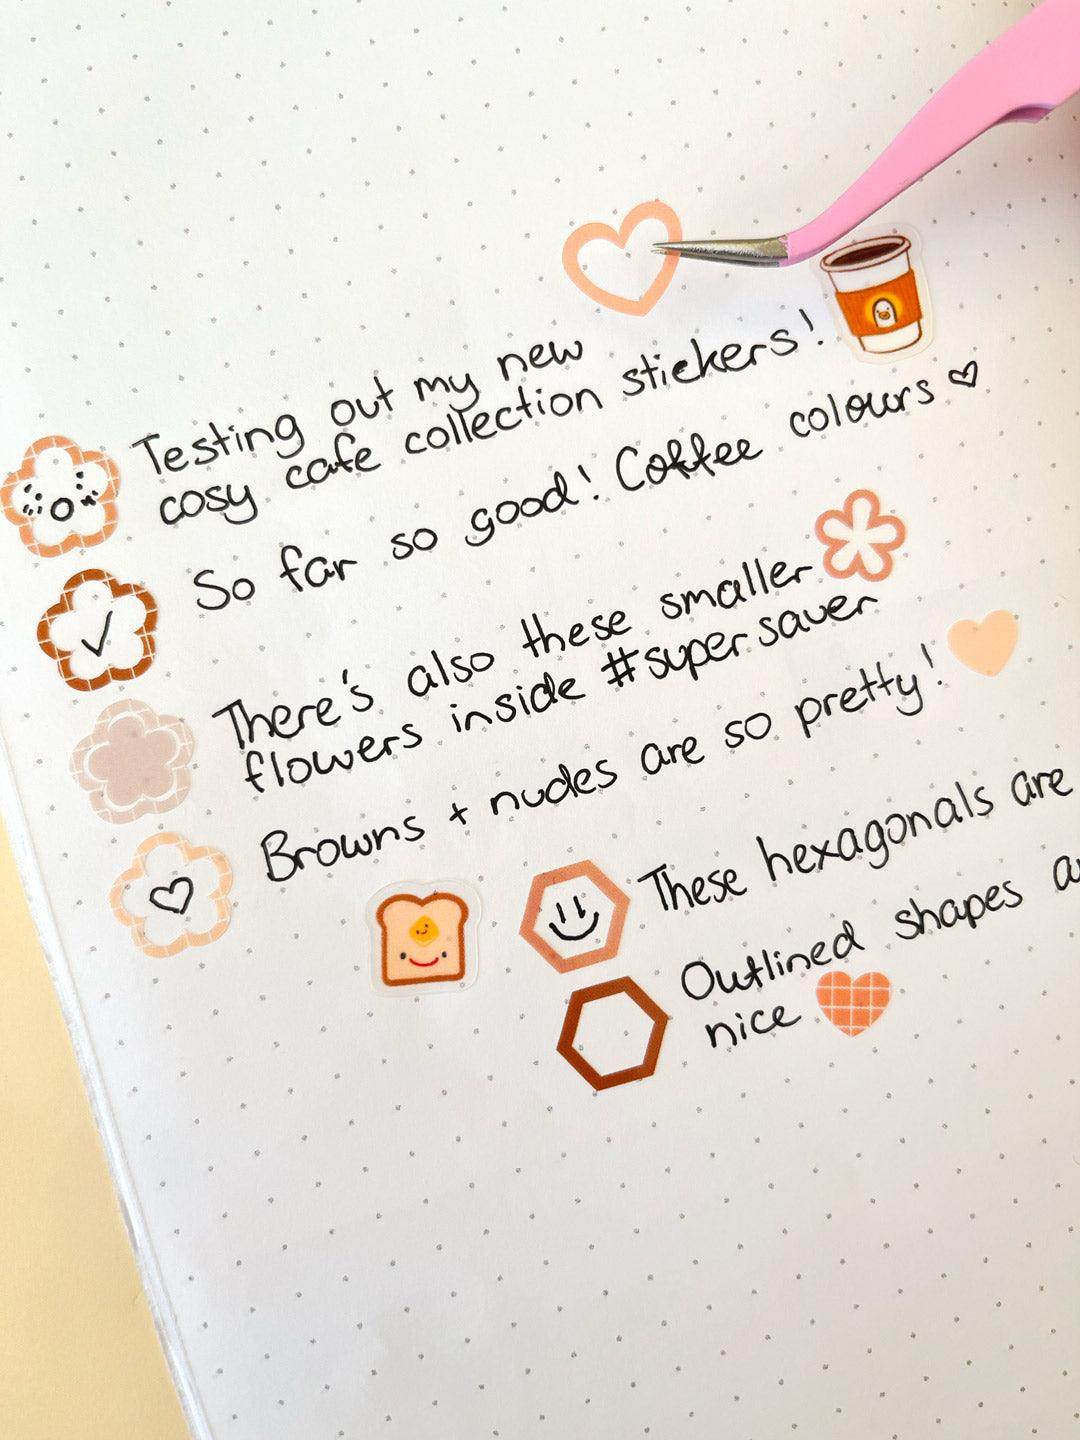 Testing out my new
cosy cafe collection stickers!
So far so good! Coffee colours ♡
There's also these smaller
flowers inside #supersaver
Browns + nudes are so pretty!
These hexagonals are
Outlined shapes
nice